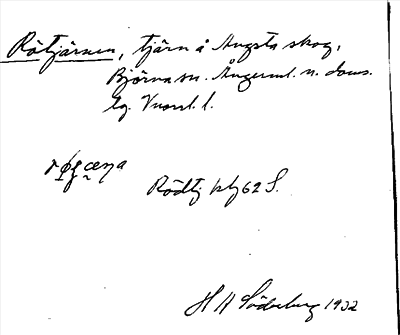 Rötjärnen, tjärn å Angsta skog,
Björna sn. Ångerml. n. doms.
lg. Vnorrl. l.
Rödtj blg 62 S.
H H Söderberg 1932